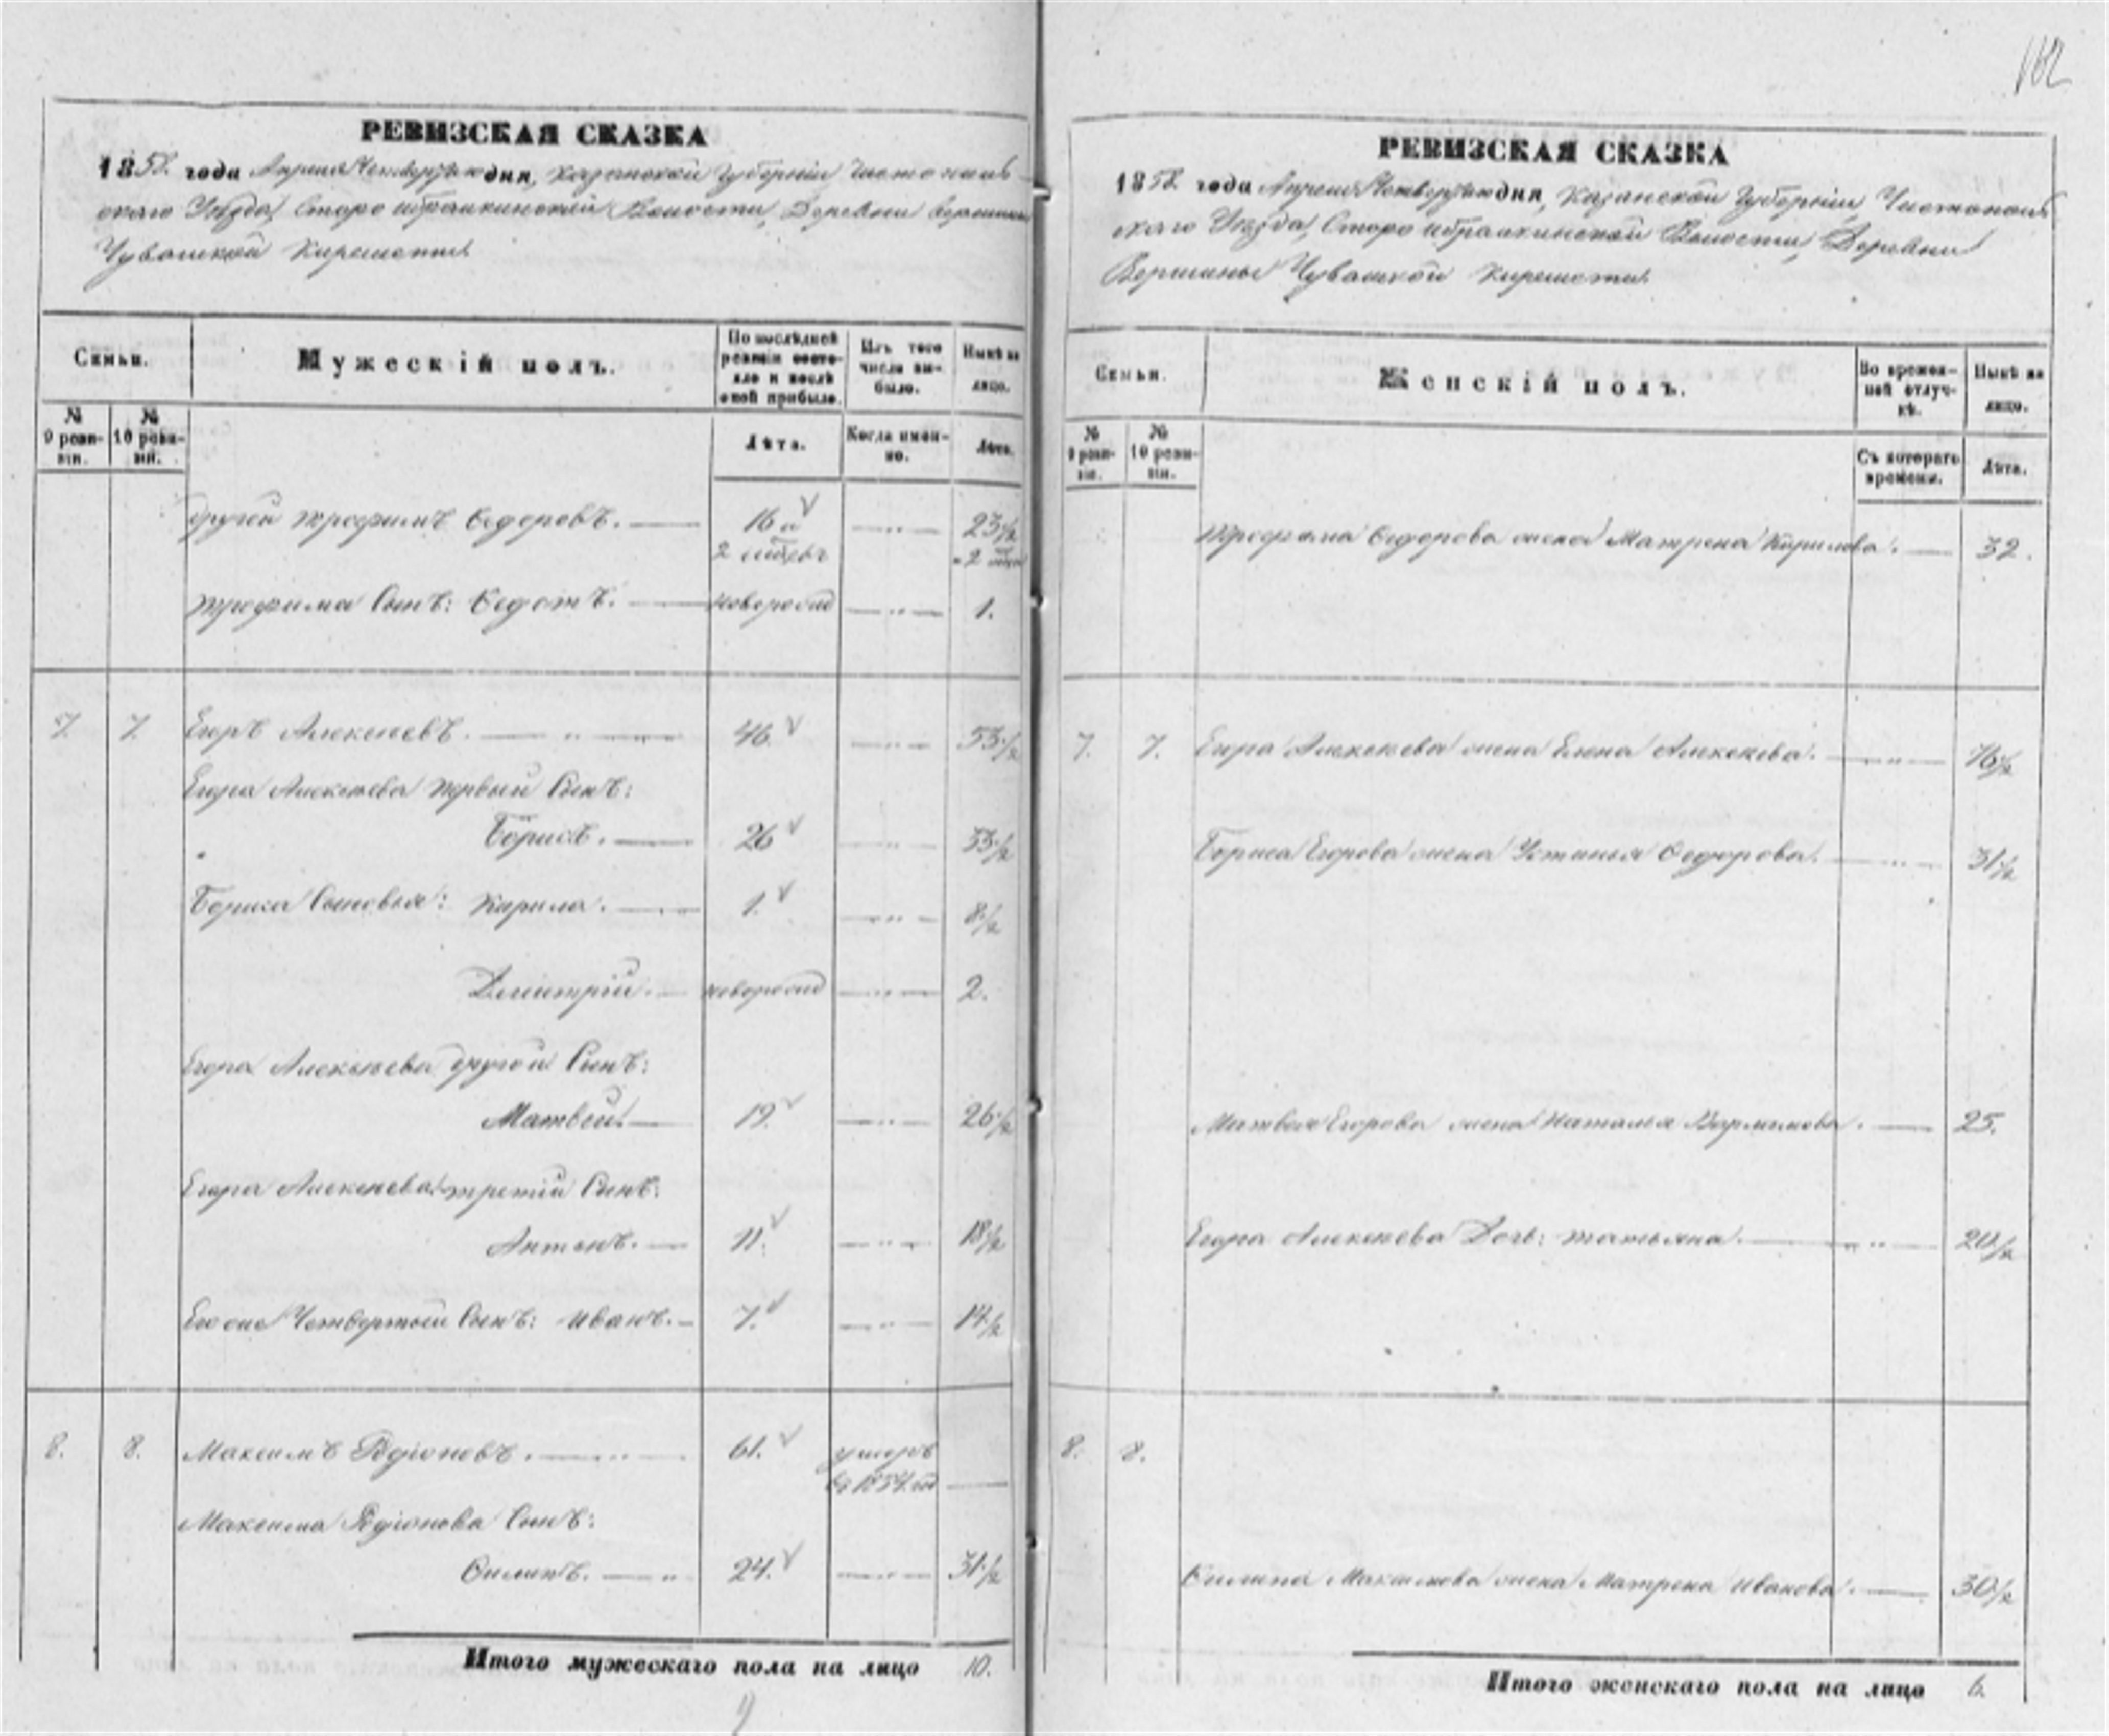 162
РЕВИЗСКАЯ СКАЗКА
1858 года Апреля Четвертаго дня, Казанской Губерніи Чистополь-
скаго Уѣзда, Старо Ибрайкинской Волости, Деревни Вершины
Чувашской Киреметли.
Семьи.
Мужескій полъ.
По послѣдней ревизіи состояло и послѣ оной прибыло.
Изъ того числа выбыло.
Нынѣ на лицо.
№ 9 ревизіи.
№ 10 ревизіи.
Лѣта.
Когда именно.
Лѣта.
другой Трофимъ Ѳедоровъ. 16 и 23½
2 мѣсяцъ
Трофима Сынъ: Ѳедотъ. новорожд 1.
7. 7. Егоръ Алексѣевъ. 46. 53½
Егора Алексѣева первый Сынъ:
Борисъ. 26 33½
Бориса Сыновья: Кирила. 1. 8½
Дмитрій. новорожд 2.
Егора Алексѣева другой Сынъ:
Матвей. 19. 26½
Егора Алексѣева третій Сынъ:
Антонъ. 11. 18½
Его же Четвертый Сынъ: Иванъ. 7. 14½
8. 8. Максимъ Родіоновъ. 61. умеръ
въ 1854 год
Максима Родіонова Сынъ:
Филипъ. 24. 31½
Итого мужескаго пола на лицо 10.
РЕВИЗСКАЯ СКАЗКА
1858 года Апреля Четвертаго дня, Казанской Губерніи, Чистополь-
скаго Уѣзда, Старо Ибрайкинской Волости, Деревни
Вершины Чувашской Киреметли.
Семьи.
Женскій полъ.
Во временной отлучкѣ.
Нынѣ на лицо.
№ 9 ревизіи.
№ 10 ревизіи.
Съ котораго времени.
Лѣта.
Трофима Ѳедорова жена Матрена Кирилова. 32.
7. 7. Егора Алексѣева жена Елена Алексѣева.
Бориса Егорова жена Устинья Ѳедорова. 31½
Матвея Егорова жена Наталья 25.
Егора Алексѣева Дочь: Татьяна. 20½
8. 8.
Филипа Максимова жена Матрена Иванова. 30½
Итого женскаго пола на лицо 6.